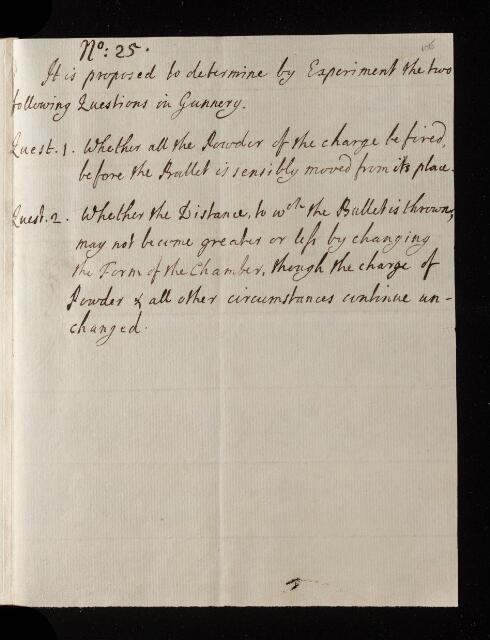 No: 25.
106
It is proposed to determine by Experiment the two
following Questions in Gunnery.
Quest. 1. Whether all the Powder of the charge be fired,
before the Bullet is sensibly moved from its place.
Quest. 2. Whether the Distance, to wch the Bullet is thrown,
may not become greater or less by changing
the Form of the Chamber, though the charge of
Powder & all other circumstances continue un-
changed.